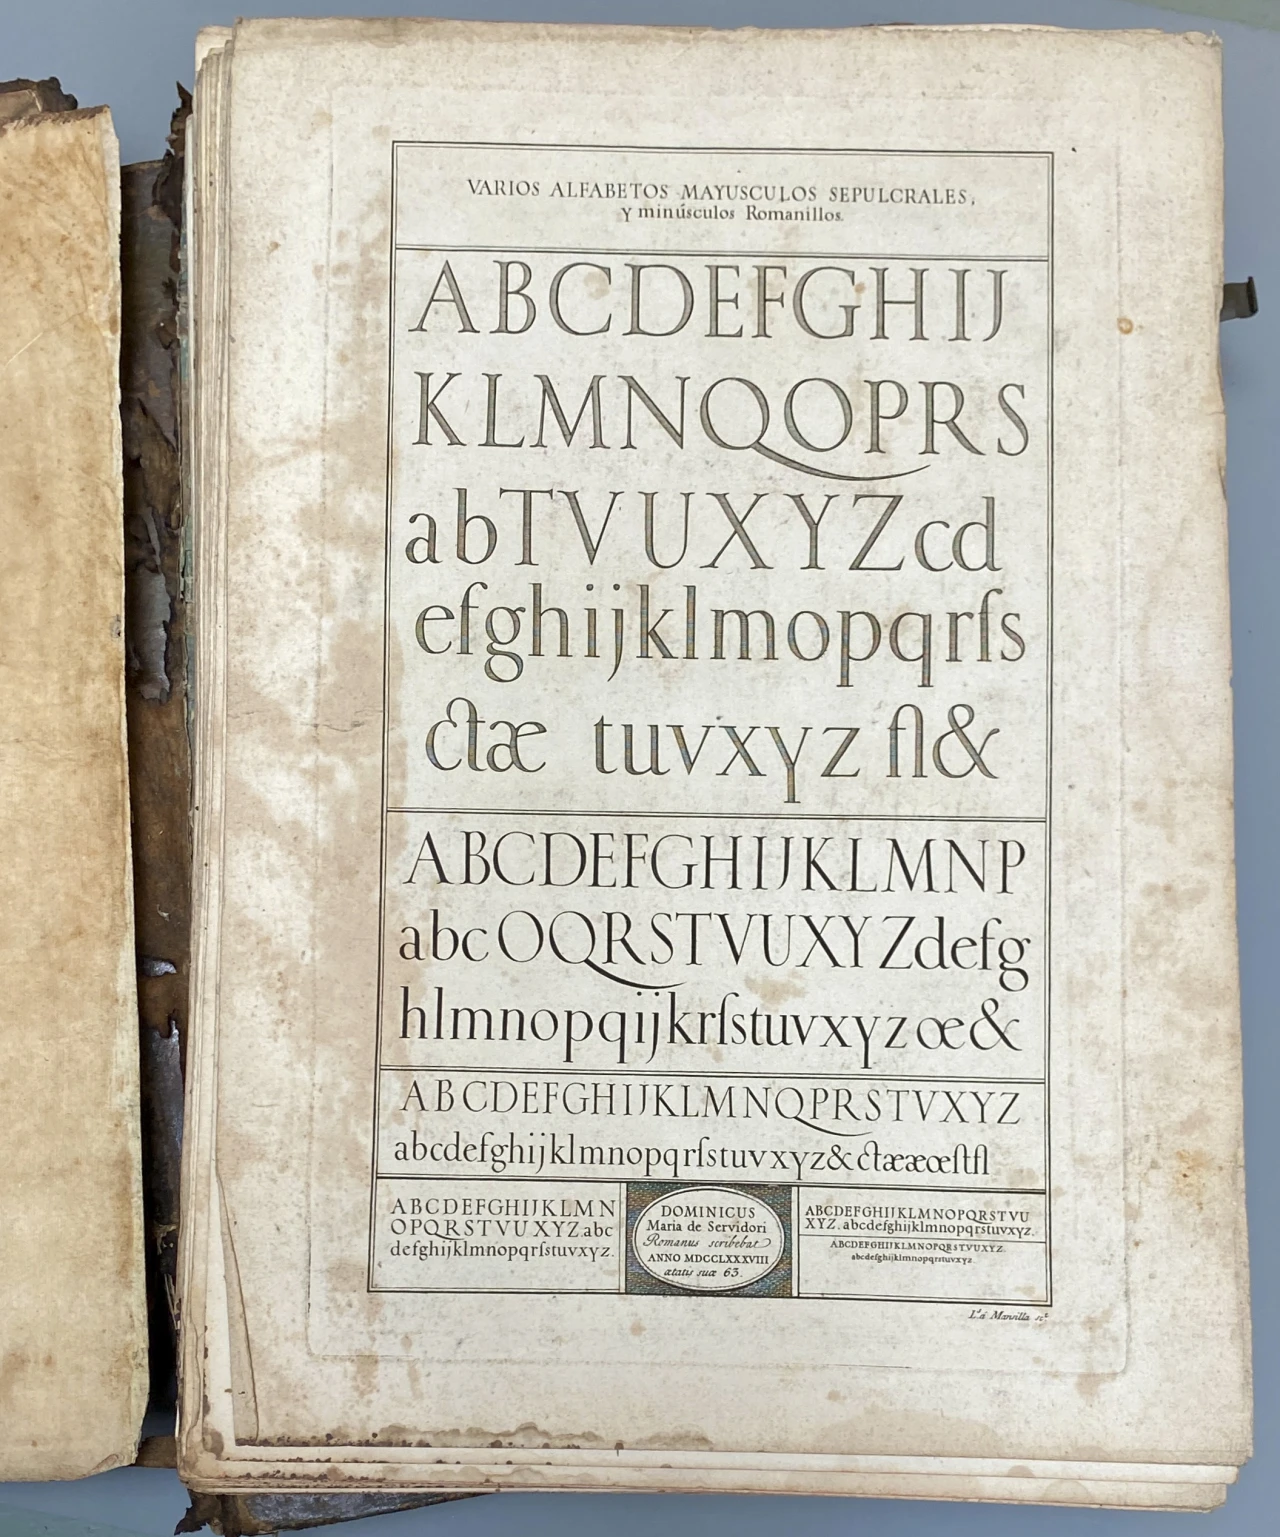 VARIOS ALFABETOS MAYUSCULOS SEPULCRALES,
Y minúsculos Romanillos.
ABCDEFGHIJ
KLMNQOPRS
abTVUXYZcd
efghijklmopqrſs
ctæ tuvxyz fl&
ABCDEFGHIJKLMNP
abcOQRSTVUXYZdefg
hlmnopqijkrſstuvxyzœ&
ABCDEFGHIJKLMNQPRSTVXYZ
abcdefghijklmnopqrſstuvxyz&ctææœſtfl
ABCDEFGHIJKLMN
OPQRSTVUXYZ.abc
defghijklmnopqrſstuvxyz.
DOMINICUS
Maria de Servidori
Romanus scribebat
ANNO MDCCLXXXVIII
ætatis suæ 63.
ABCDEFGHIJKLMNOPQRSTVU
XYZ. abcdefghijklmnopqrstuvxyz.
ABCDEFGHIJKLMNOPQRSTVUXYZ.
abcdefghijklmnopqrstuvxyz
Mansilla sc.t